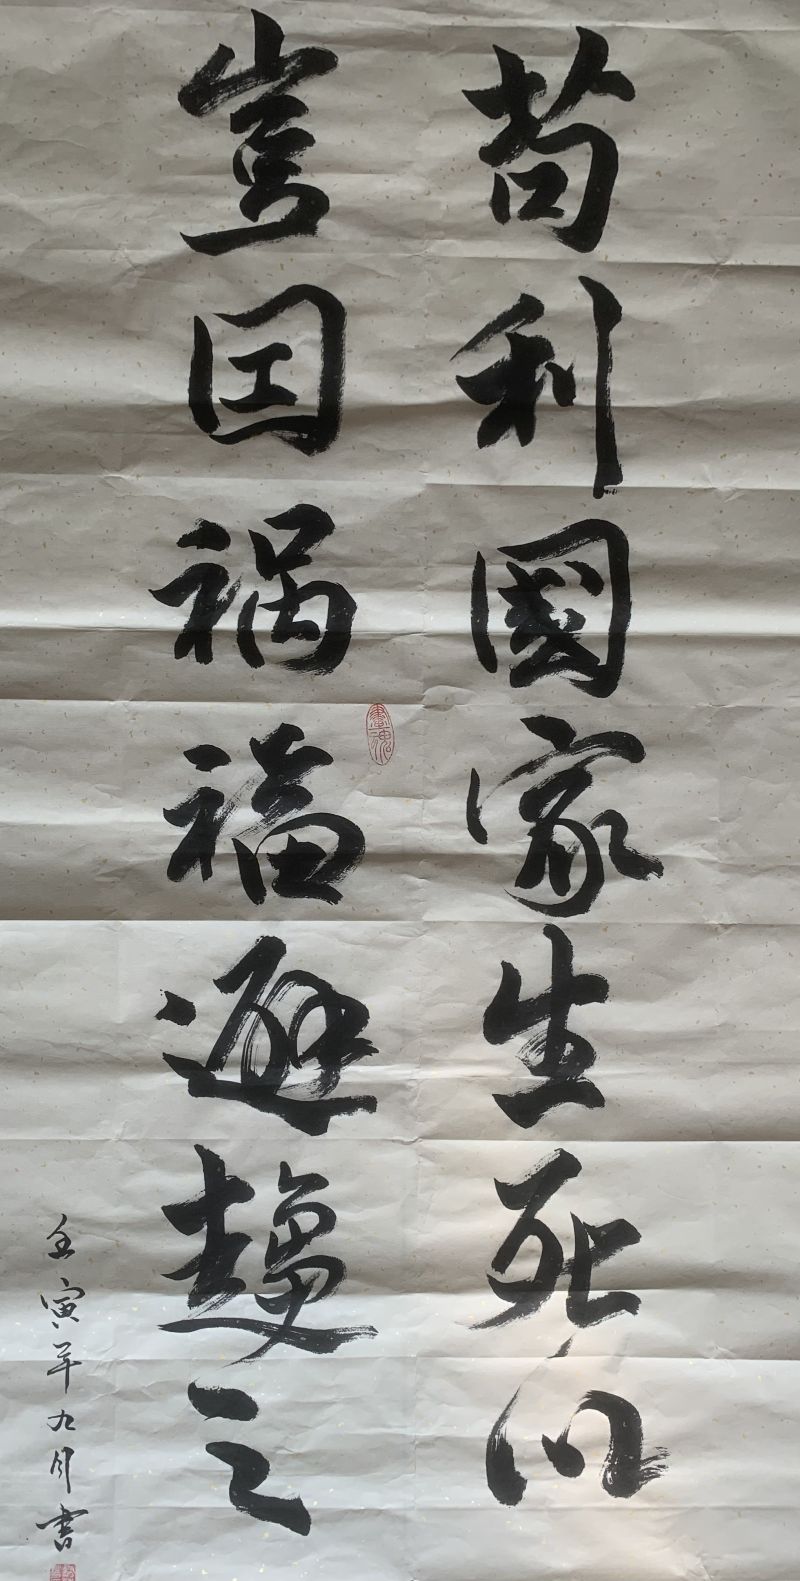 苟利國家生死以
豈因祸福避趨之
壬寅年九月書